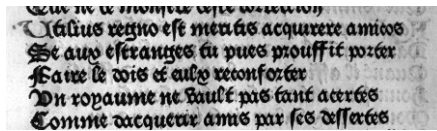 Que ne de monstre ceste correction
Utilius regno est meritis acquirere amicos
Se aux estranges tu pues prouffit porter
Faire le dois et eulx reconforter
Un royaume ne vault pas tant acertes
Comme dacquerir amis par ses dessertes